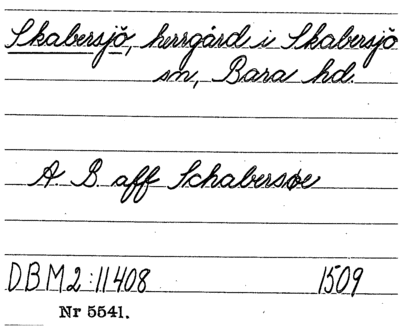 Skabersjö, herrgård i Skabersjö
sn, Bara hd.
A. B. aff Schabersøe
DBM2:11408 1509
Nr 5541.